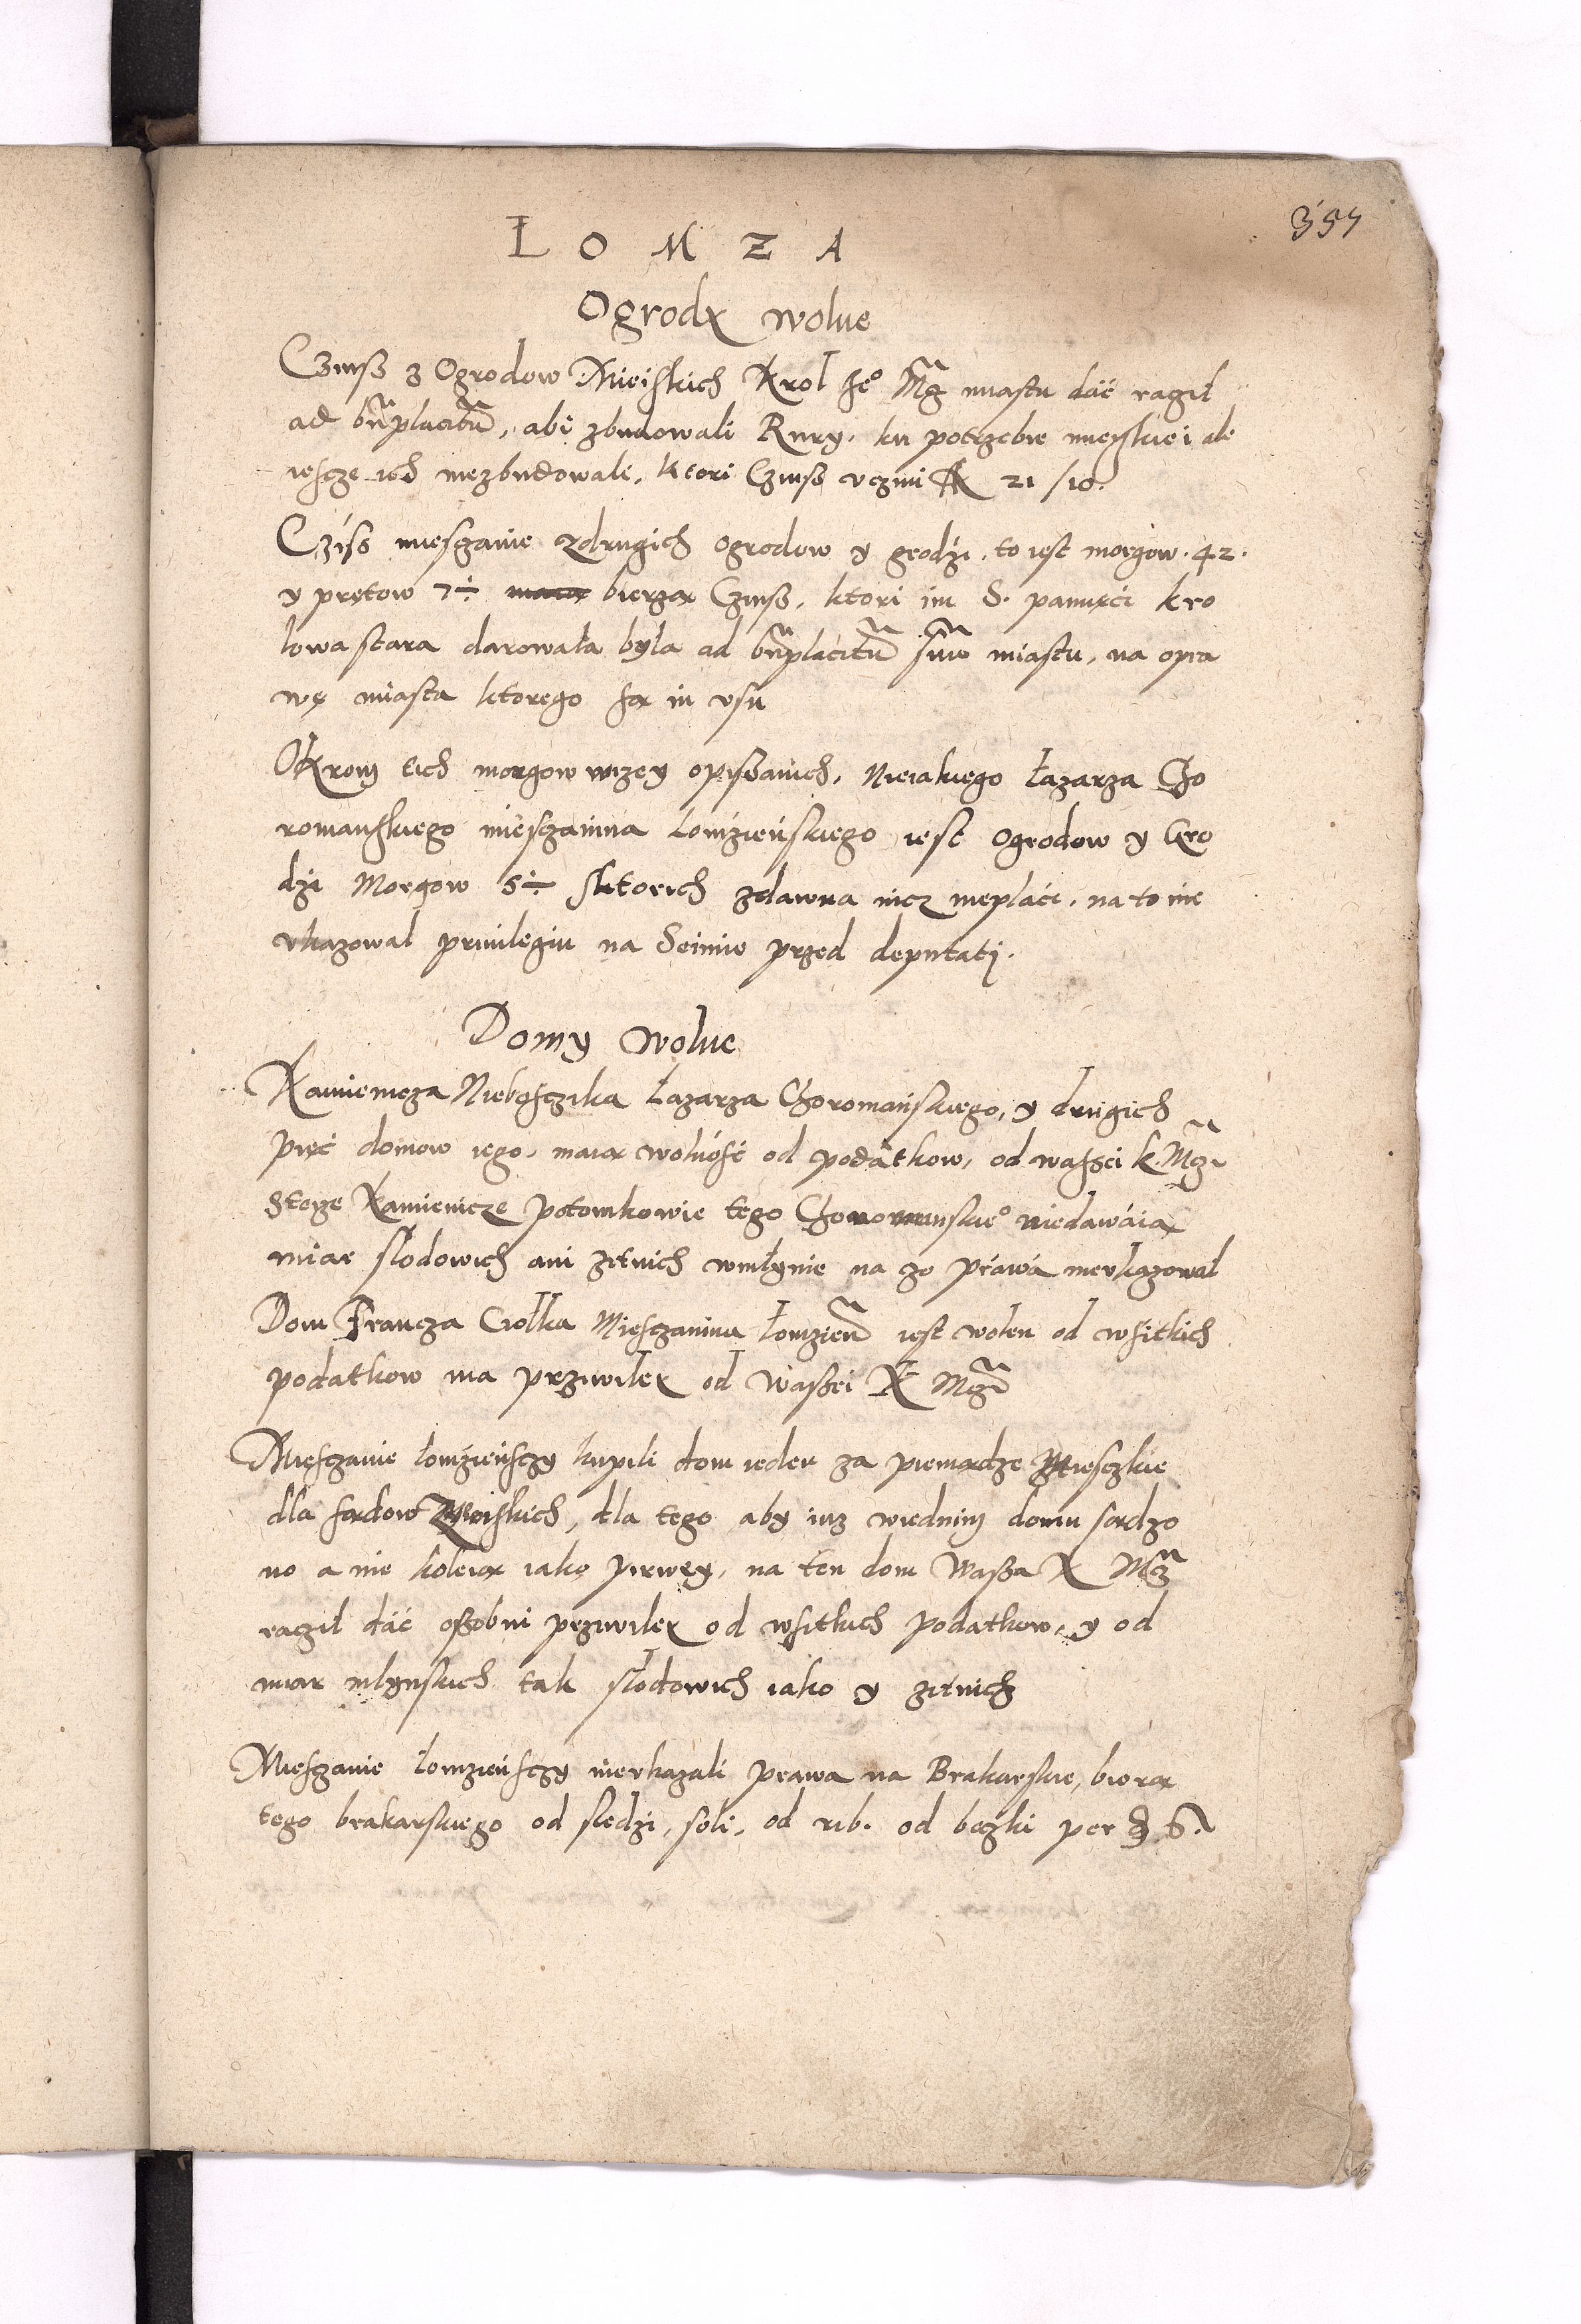 357
LOMZA
Ogrody wolne
Czinsz z Ogrodow Mieiskich Krol Je° Mcz miastu dać racził
ad bnplacitu, abi zbudowali Rury, ku potrzebie mieyskiei ale
iescze ich niezbudowali, ktori Czinsz vczini 21 /10.
Cziss miesczanie zdrugich ogrodow y grodzi, to iest morgow 42.
y prętow 7÷ bierzą Czinsz, ktori im S. pamięci kro
lowa stara darowała była ad bnplacitu suu miastu, na opra
wę miasta ktorego są in vsu
Okrom tich morgow wyzey opissanich, Nieiakiego Łazarza Cho
romanskiego miesczanina Łomzieńskiego iest Ogrodow y Gro
dzi Morgow 5÷ sktorich zdawna nicz nieplaci, na to nie
vkazowal priuilegiu na Seimie przed deputati.
Domy wolne
Kamienicza Nieboscziка Łazarza Choromańskiego, y drugich
pięć domow iego, maią wolność od podatkow, od wassei k. Mczi
Steyze Kamienicze potomkowie tego Choromanskie° niedawáią
miar słodowich ani zitnich wmłynie na zo práwá nievkazowal
Dom Francza Ciołka Miesczanina Łomzien iest wolen od wsitkich
podatkow ma przywiley od Wassei K Mczi
Miesczanie Łomzieńsczy kupili dom ieden za pieniądze Miesczkie
dla sądow Mieiskich, dla tego aby iuz wiednim domu sądzo
no a nie koleią iako pirwey, na ten dom Wassa K Mcz
raczil dáć ossobni przywiley od wsitkich podatkow, y od
miar mlynskich tak słodowich iako y zitnich
Miesczanie Łomzieńsczy nievkazali prawa na Brakarskie, biorą
tego brakarskiego od sledzi, soli, od rib. od beczki per 6.